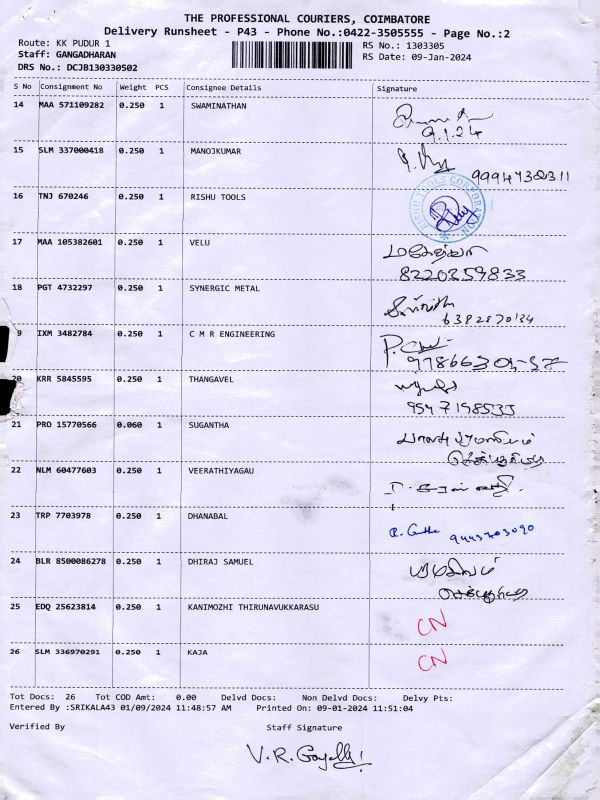 THE PROFESSIONAL COURIERS, COIMBATORE
Delivery Runsheet - P43 - Phone No.:0422-3505555 - Page No.:2
Route: KK PUDUR 1 RS No.: 1303305
Staff: GANGADHARAN RS Date: 09-Jan-2024
DRS No.: DCJB130330502
S No Consignment No Weight PCS Consignee Details Signature
14 MAA 571109282 0.250 1 SWAMINATHAN
9.1.24
15 SLM 337000418 0.250 1 MANOJKUMAR
16 TNJ 670246 0.250 1 RISHU TOOLS
17 MAA 105382601 0.250 1 VELU
8220359833
18 PGT 4732297 0.250 1 SYNERGIC METAL
9 IXM 3482784 0.250 1 C M R ENGINEERING
20 KRR 5845595 0.250 1 THANGAVEL
21 PRO 15770566 0.060 1 SUGANTHA
22 NLM 60477603 0.250 1 VEERATHIYAGAU
23 TRP 7703978 0.250 1 DHANABAL
24 BLR 8500086278 0.250 1 DHIRAJ SAMUEL
25 EDQ 25623814 0.250 1 KANIMOZHI THIRUNAVUKKARASU CN
26 SLM 336970291 0.250 1 KAJA CN
Tot Docs: 26 Tot COD Amt: 0.00 Delvd Docs: Non Delvd Docs: Delvy Pts:
Entered By :SRIKALA43 01/09/2024 11:48:57 AM Printed On: 09-01-2024 11:51:04
Verified By Staff Signature
V.R.